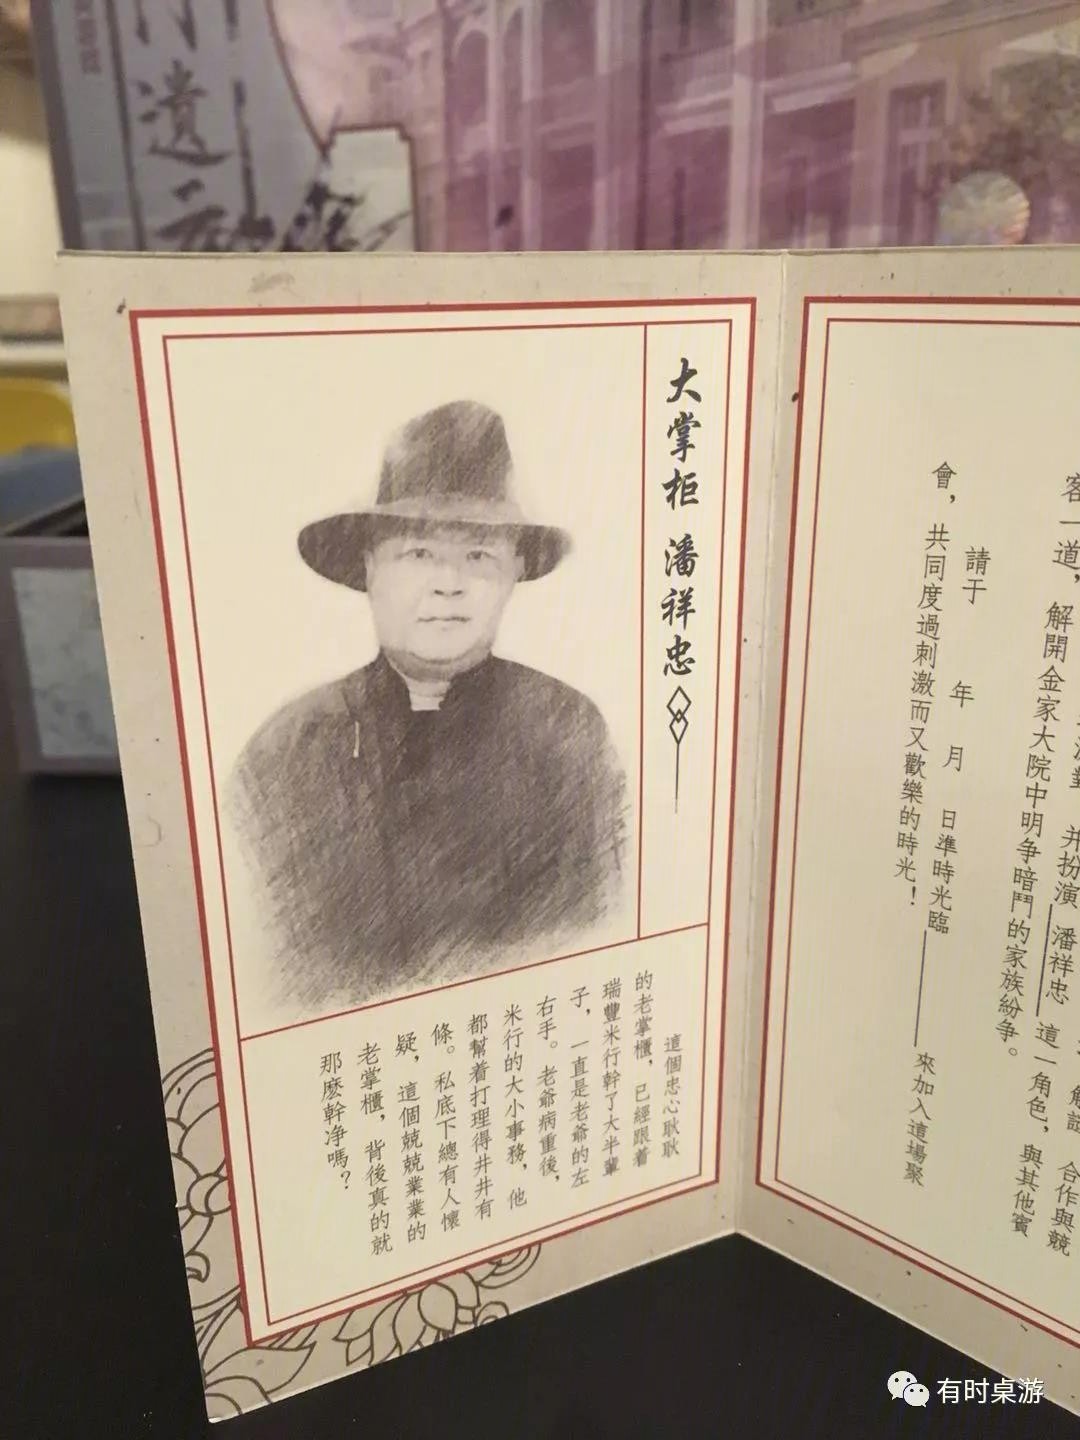 遺
大掌柜 潘祥忠
這個忠心耿耿
的老掌櫃，已經跟着
瑞豐米行幹了大半輩
子，一直是老爺的左
右手。老爺病重後，
米行的大小事務，他
都幫着打理得井井有
條。私底下總有人懷
疑，這個兢兢業業的
老掌櫃，背後真的就
那麼幹净嗎？
并扮演 潘祥忠 這一角色，與其他賓
客一道，解開金家大院中明争暗鬥的家族紛争。
請于 年 月 日準時光臨 來加入這場聚
會，共同度過刺激而又歡樂的時光！
合作與競
有时桌游